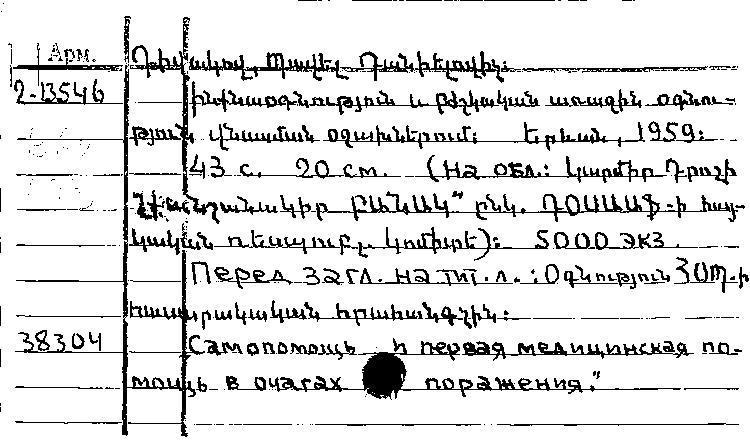 Арм.
2-13546
Պավել Դանիելովիչ:
Ինքնաօգնություն և բժշկական առաջին օգնու-
թյուն վնասման օջախներում: Երևան, 1959:
43 с. 20 см. (На обл.: Կարմիր Դրոշի
շքանշանակիր բանակ" ընկ. ԴՕՍԱԱՖ-ի հայ-
կական ռեսպուբլ. կոմիտե): 5000 экз.
Перед загл. на тит. л.: Օգնություն ՀՕՊ-ի
հասարակական հրահանգչին:
38304
Самопомощь и первая медицинская по-
мощь в очагах поражения."